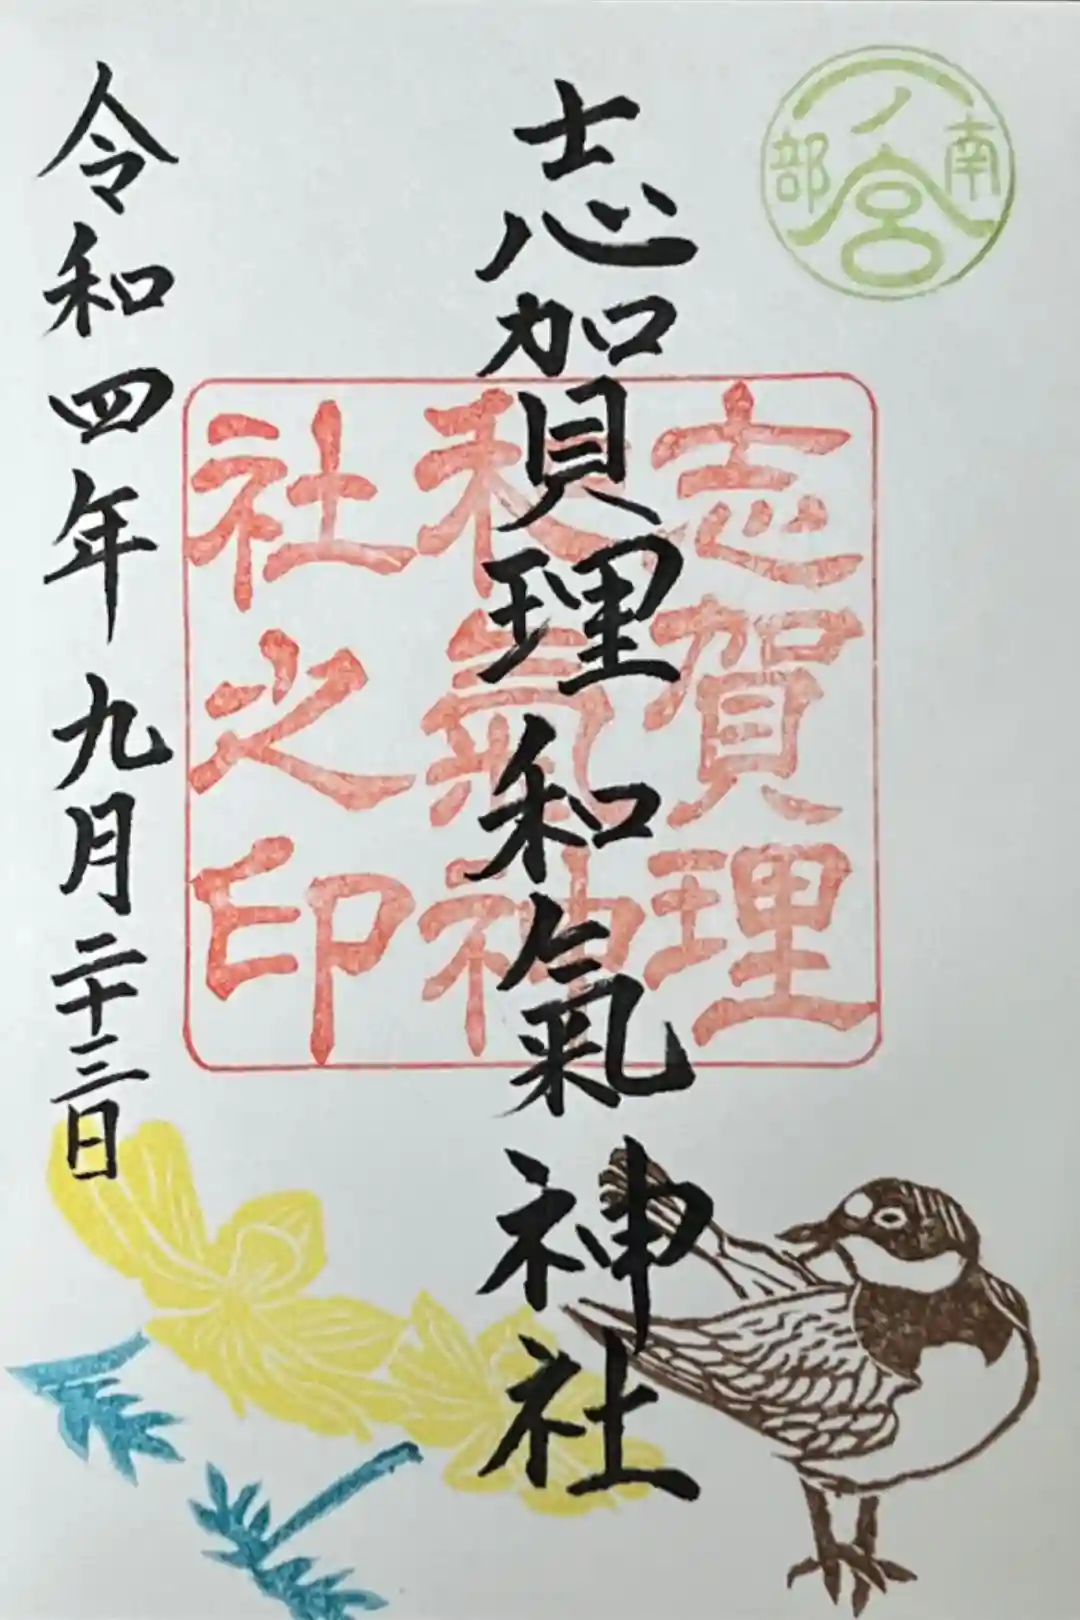 南
一ノ宮
部
志賀理和氣神社
志賀理
和氣神
社之印
令和四年九月二十三日